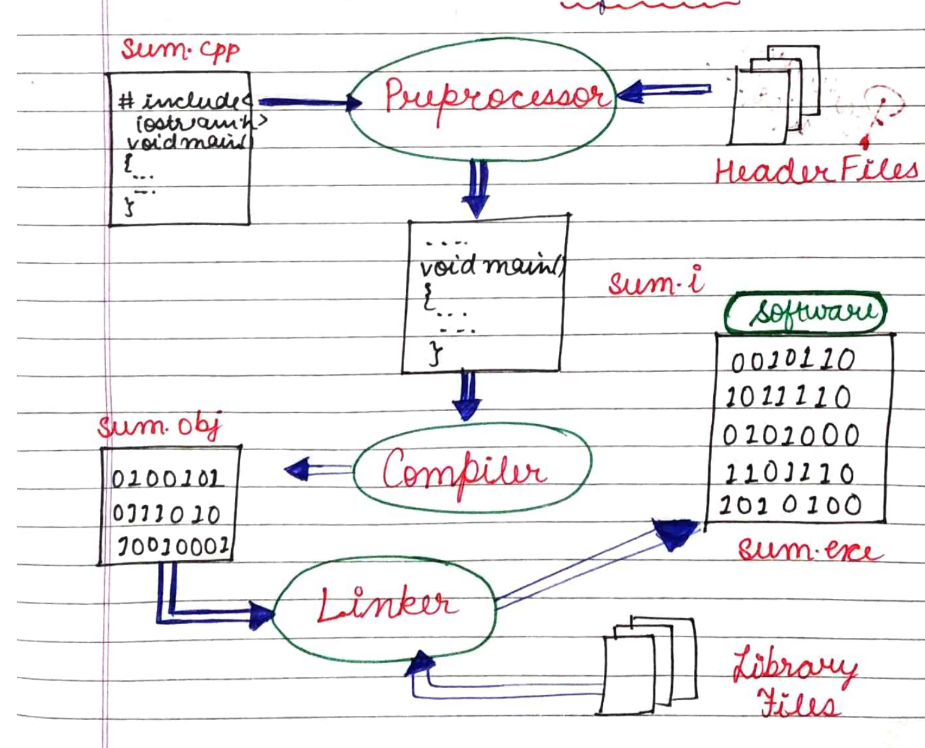 sum.cpp
# include<
iostream.h>
void main()
{
...
...
}
Preprocessor
Header Files
....
void main()
{
...
---
}
sum.i
software
0010110
1011110
0101000
1101110
1010100
sum.exe
Compiler
sum.obj
0100101
0111010
10010001
Linker
Library
Files